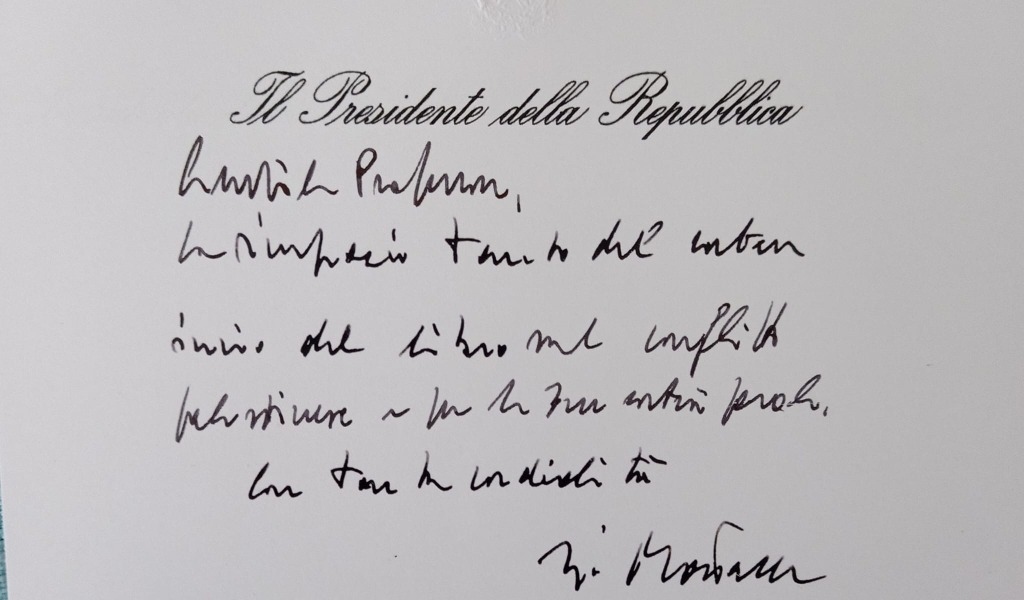 Il Presidente della Repubblica
Gentile Professore,
La ringrazio tanto del cortese
invio del libro sul conflitto
palestinese e per le Sue cortesi parole.
Con tanta cordialità
Mattarella